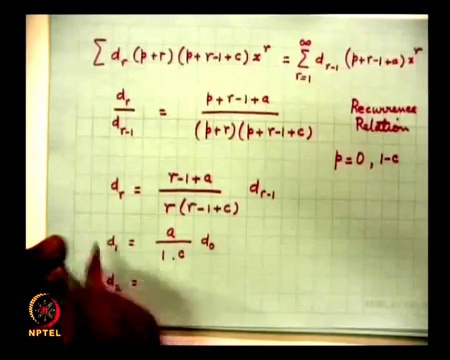 ∑ d_r (p+r) (p+r-1+c) x^r = ∑_{r=1}^{∞} d_{r-1} (p+r-1+a) x^r
d_r / d_{r-1} = (p+r-1+a) / ((p+r) (p+r-1+c))
Recurrence
Relation
p=0, 1-c
d_r = (r-1+a) / (r (r-1+c)) d_{r-1}
d_1 = a / (1.c) d_0
d_2 =
NPTEL